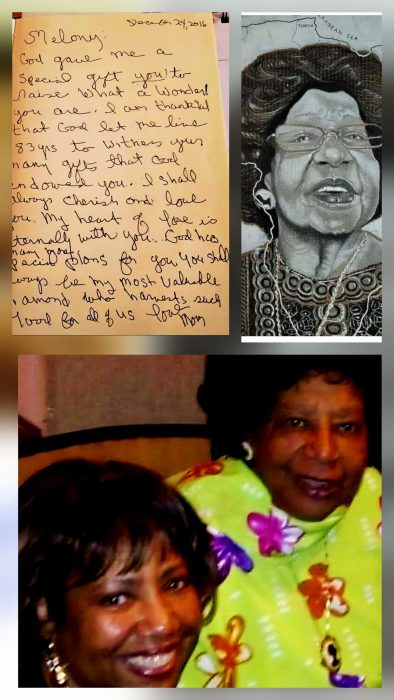 December 24, 2016
Melony:
God gave me a
special gift you to
raise What a Wonder
you are. I am thankful
that God let me live
83 yrs to witness your
many gifts that God
endowed you. I shall
always cherish and love
you. My heart of love is
eternally with you. God has
many more
special plans for you. You shall
always be my most valuable
among who harvests such
good for all of us love Mom
TUNISIA
RANEAN SEA